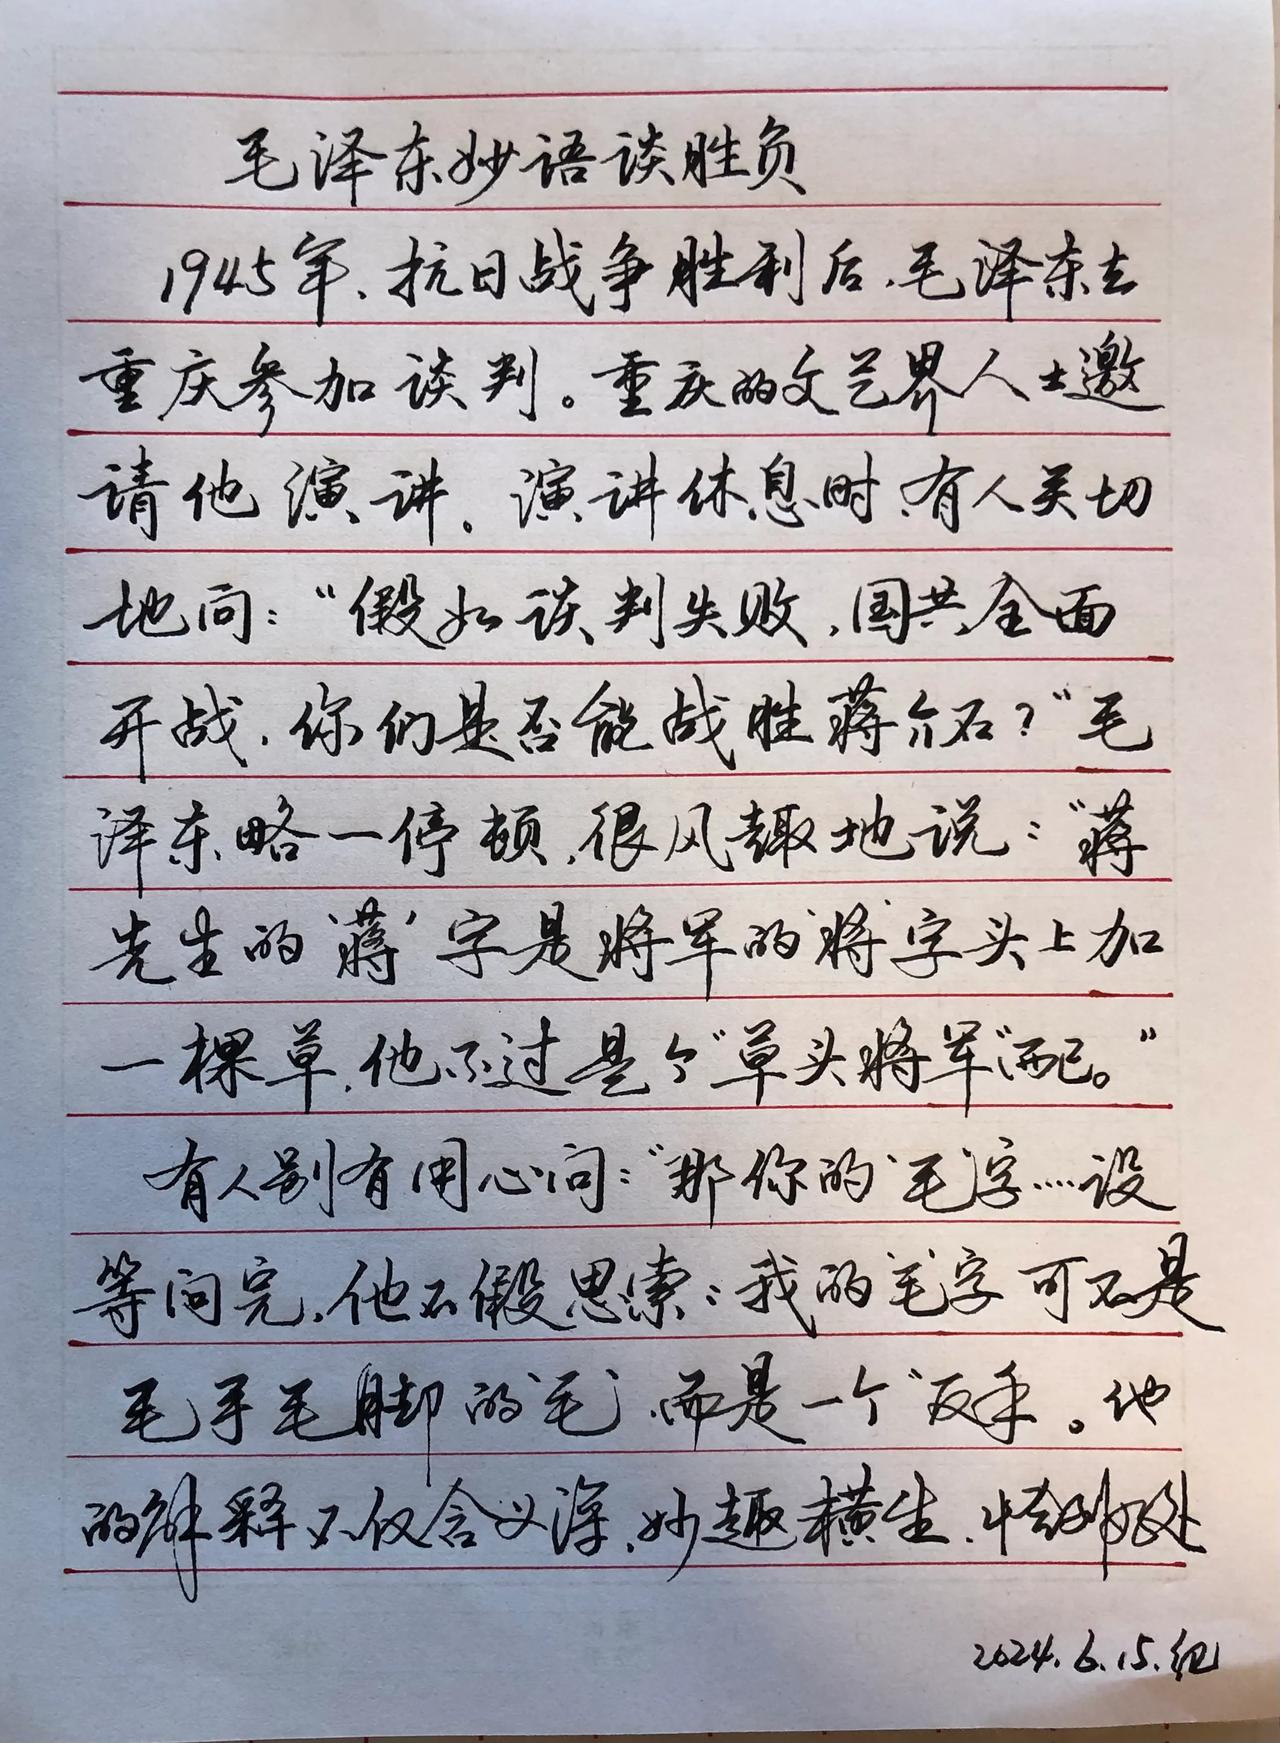 毛泽东妙语谈胜负
1945年、抗日战争胜利后,毛泽东去
重庆参加谈判。重庆的文艺界人士邀
请他演讲。演讲休息时,有人关切
地问:“假如谈判失败,国共全面
开战,你们是否能战胜蒋介石?”毛
泽东略一停顿,很风趣地说:“蒋
先生的‘蒋’字是将军的‘将’字头上加
一棵草,他不过是个“草头将军”而已。”
有人别有用心问:“那你的‘毛’字……没
等问完,他不假思索:我的‘毛’字可不是
毛手毛脚的‘毛’,而是一个“反手。他
的解释不仅含义深,妙趣横生,恰到好处
2024.6.15.